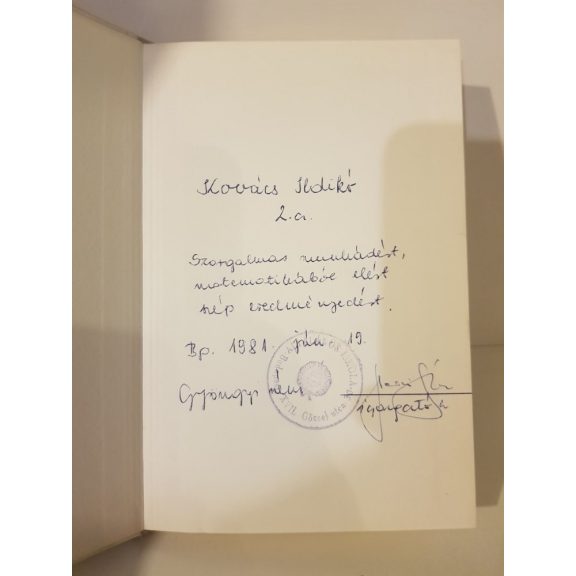 Kovács Ildikó
2.a.
Szorgalmas munkádért,
matematikából elért
szép eredményedért.
Bp. 1981. jún 19.
Gyöngyi néni
igazgató
ISKOLA
XVII. utca